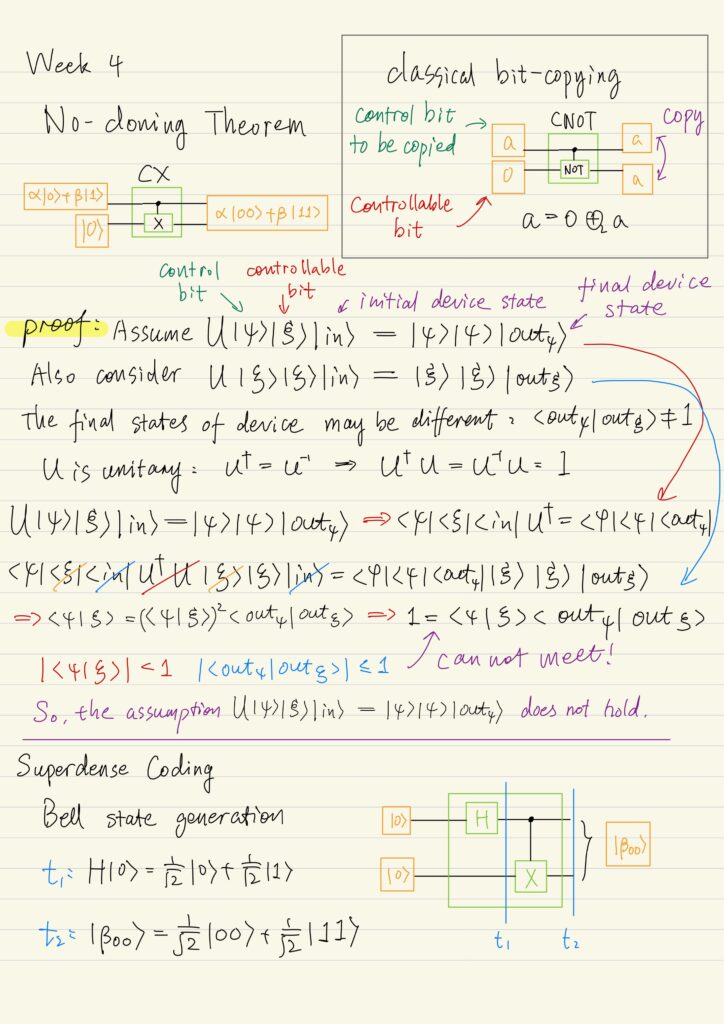 Week 4
No-cloning Theorem
CX
α|0⟩+β|1⟩
|0⟩
X
α|00⟩+β|11⟩
classical bit-copying
control bit
to be copied
CNOT
copy
a
a
0
NOT
a
Controllable
bit
a = 0 ⊕₂ a
control
bit
controllable
bit
initial device state
final device
state
proof: Assume U|ψ⟩|ξ⟩|in⟩ = |ψ⟩|ψ⟩|outψ⟩
Also consider U|ξ⟩|ξ⟩|in⟩ = |ξ⟩|ξ⟩|outξ⟩
The final states of device may be different: ⟨outψ|outξ⟩ ≠ 1
U is unitary: U† = U⁻¹ ⇒ U†U = U⁻¹U = 1
U|ψ⟩|ξ⟩|in⟩ = |ψ⟩|ψ⟩|outψ⟩ ⇒ ⟨ψ|⟨ξ|⟨in|U† = ⟨ψ|⟨ψ|⟨outψ|
⟨ψ|⟨ξ|⟨in|U†U|ξ⟩|ξ⟩|in⟩ = ⟨ψ|⟨ψ|⟨outψ|ξ⟩|ξ⟩|outξ⟩
⇒ ⟨ψ|ξ⟩ = (⟨ψ|ξ⟩)²⟨outψ|outξ⟩ ⇒ 1 = ⟨ψ|ξ⟩⟨outψ|outξ⟩
|⟨ψ|ξ⟩| < 1 |⟨outψ|outξ⟩| ≤ 1 can not meet!
So, the assumption U|ψ⟩|ξ⟩|in⟩ = |ψ⟩|ψ⟩|outψ⟩ does not hold.
Superdense Coding
Bell state generation
t₁: H|0⟩ = 1/√2|0⟩ + 1/√2|1⟩
t₂: |β₀₀⟩ = 1/√2|00⟩ + 1/√2|11⟩
|0⟩
H
|0⟩
X
|β₀₀⟩
t₁
t₂